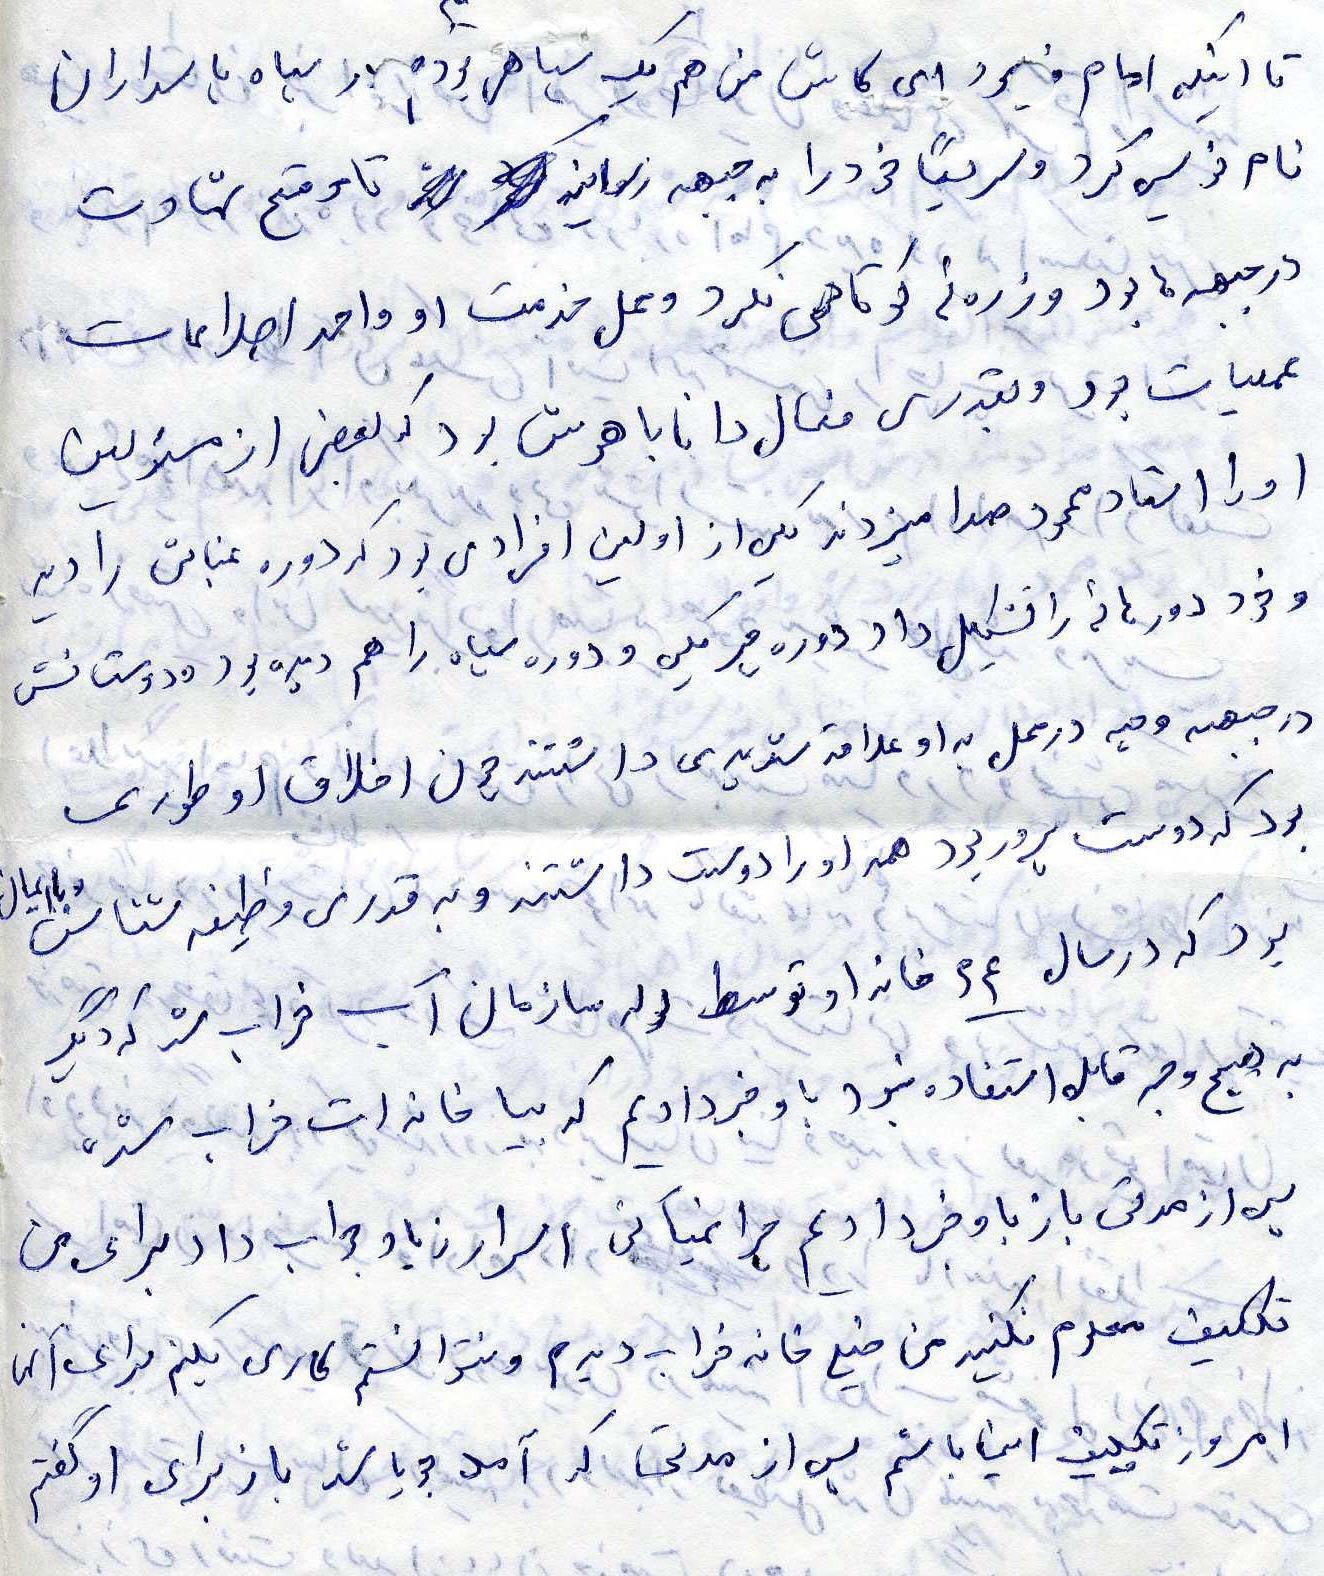 تا اینکه امام فرمود ای کاش من هم یک سپاهی بودم در سپاه پاسداران
نام نویسی کرد و سریعاً خود را به جبهه رسانید تا موقع شهادت
در جبهه ها بود و زره ئی کوتاهی نکرد و عمل خدمت او واحد اطلاعات
عملیات بود و بقدری فعال دانا باهوش بود که بعضی از مسئولین
او را استاد محمود صدا میزدند یکی از اولین افرادی بود که دوره را دید
و خود دورهائی را تشکیل داد دوره چریکی و دوره سپاه را هم دیده بود دوستانش
در جبهه و چه در محل به او علاقه شدیدی داشتند چون اخلاق او طوری
بود که دوست پرور بود همه او را دوست داشتند و به قدری وظیفه شناس و با ایمان
بود که در سال ۶۴ خانه او توسط لوله سازمان آب خراب شد که دیگر
به هیچ وجه قابل استفاده نبود باو خبر دادیم که بیا خانه ات خراب شده
پس از مدتی باز باو خبر دادیم چرا نمیآئی اسرار زیاد جواب داد برای من
تکلیف معلوم نکنید من خیلی خانه خراب دیدم و نتوانستم کاری بکنم برای آنها
امروز تکلیف اینجا باشم پس از مدتی که آمد جویا شد باز برای او گفتم